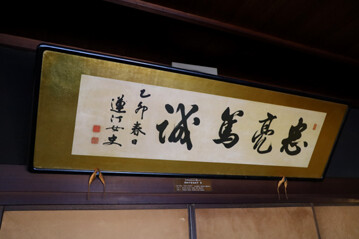 忠亮篤誠
乙卯春日
蓮汀女史